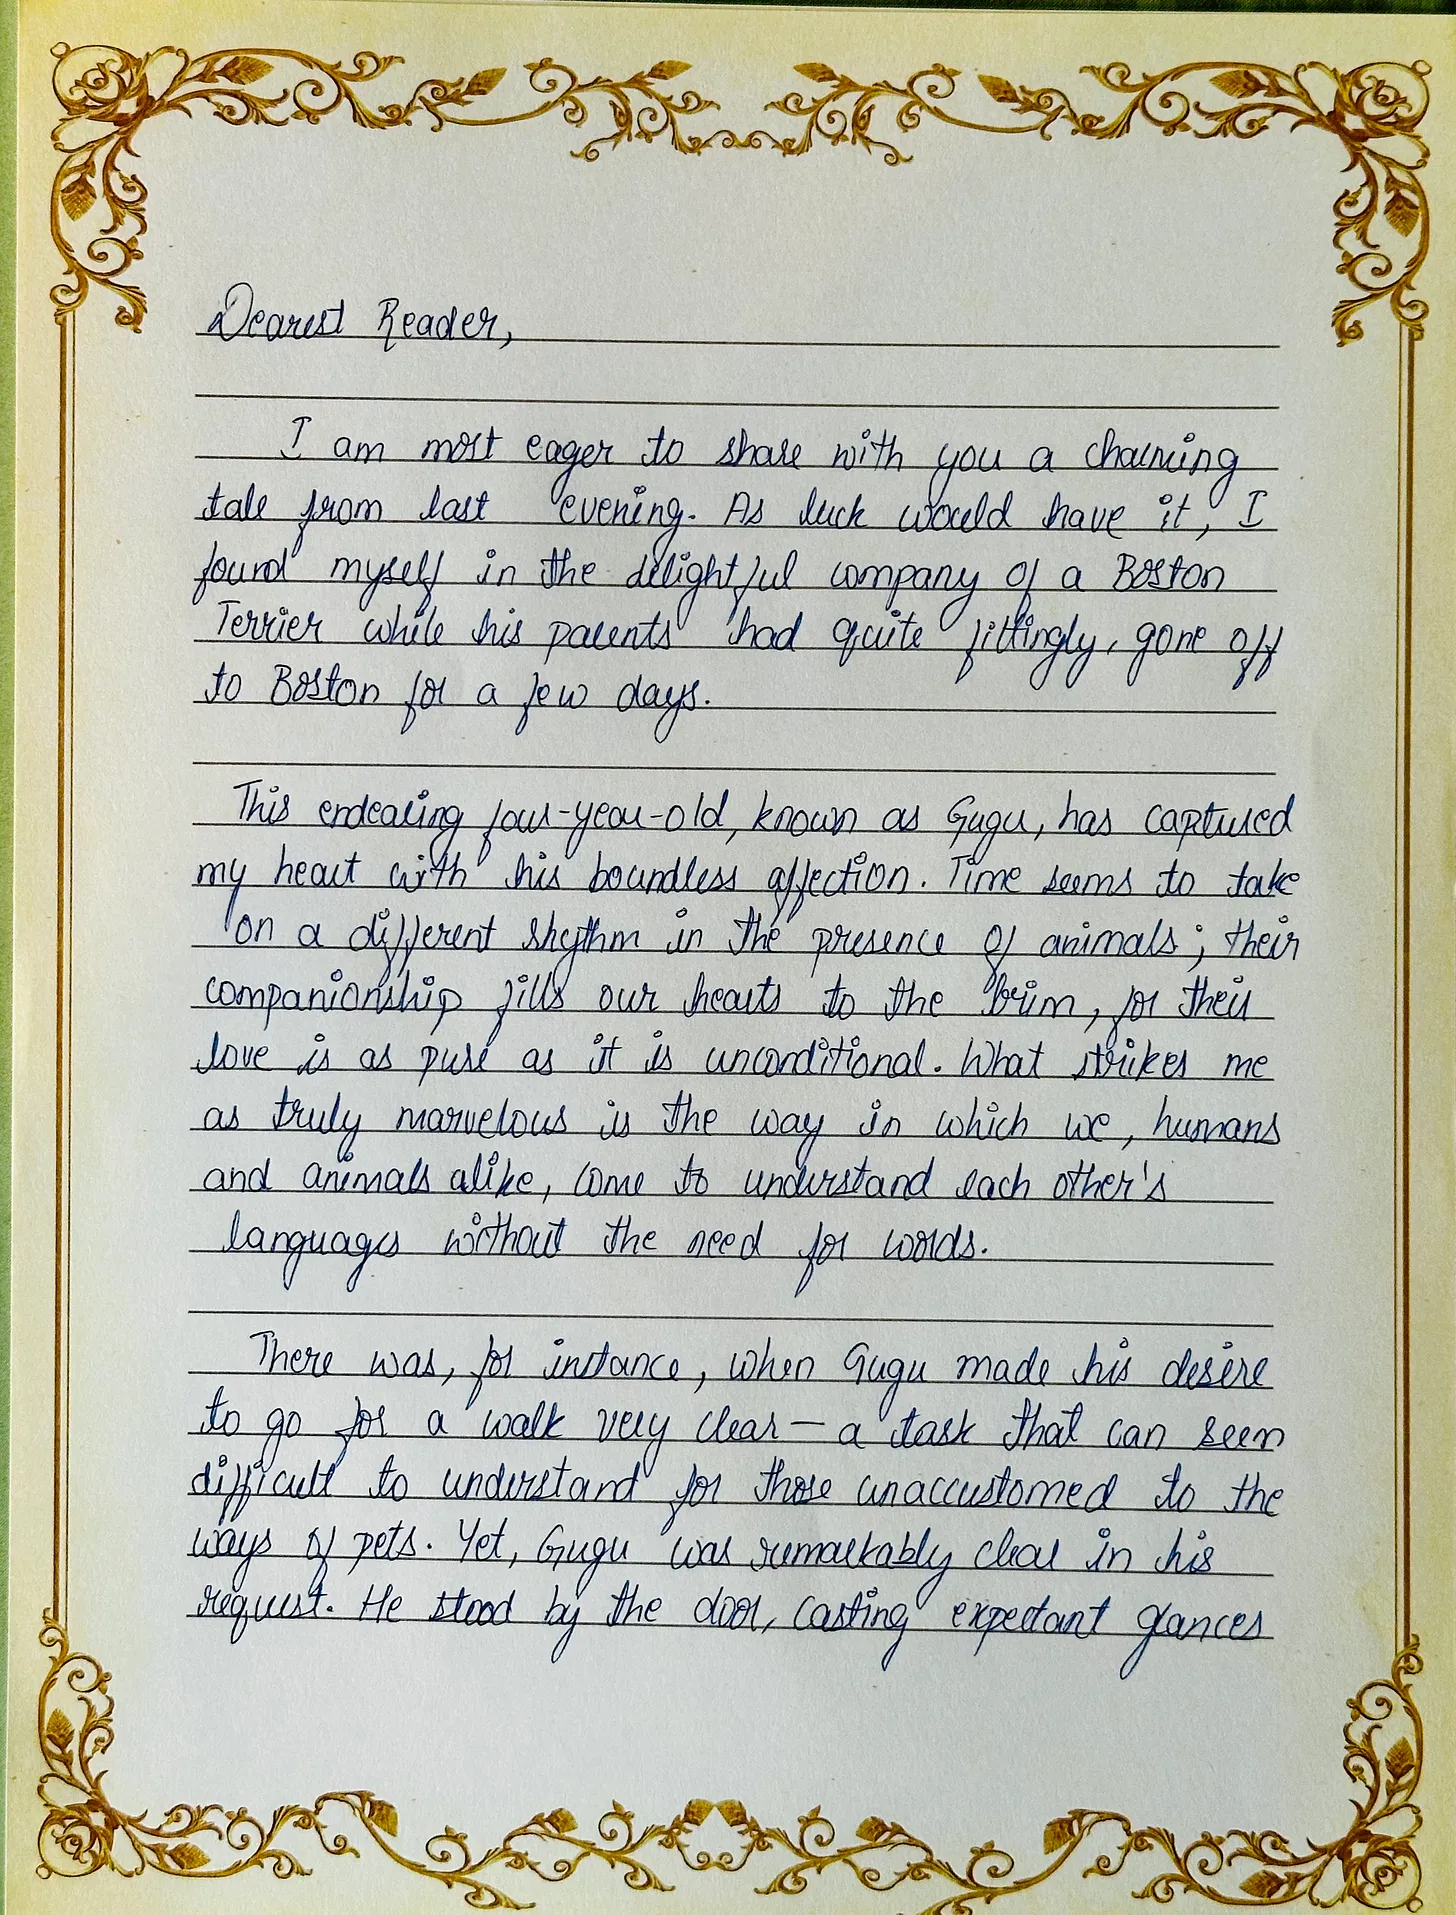 Dearest Reader,
I am most eager to share with you a charming
tale from last evening. As luck would have it, I
found myself in the delightful company of a Boston
Terrier while his parents had quite fittingly, gone off
to Boston for a few days.
This endearing four-year-old, known as Gugu, has captured
my heart with his boundless affection. Time seems to take
on a different rhythm in the presence of animals; their
companionship fills our hearts to the brim, for their
love is as pure as it is unconditional. What strikes me
as truly marvelous is the way in which we, humans
and animals alike, come to understand each other's
languages without the need for words.
There was, for instance, when Gugu made his desire
to go for a walk very clear — a task that can seem
difficult to understand for those unaccustomed to the
ways of pets. Yet, Gugu was remarkably clear in his
request. He stood by the door, casting expectant glances